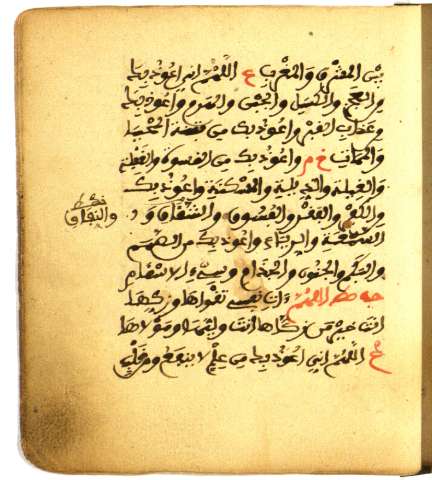 بين المشرق والمغرب ع اللهم اني اعوذ بك
من العجز والكسل والجبن والهرم واعوذ بك
من عذاب القبر واعوذ بك من فتنة المحيا
والممات خ م واعوذ بك من القسوة والغفلة
والعيلة والذلة والمسكنة واعوذ بك
من الكفر والفقر والفسوق والشقاق و
والنفاق
السمعة والرياء واعوذ بك من الصمم
والبكم والجنون والجذام وسيء الاسقام
حب اللهم ءات نفسي تقواها وزكها
انت خير من زكاها انت وليها ومولاها
اللهم اني اعوذ بك من علم لا ينفع ومن قلب